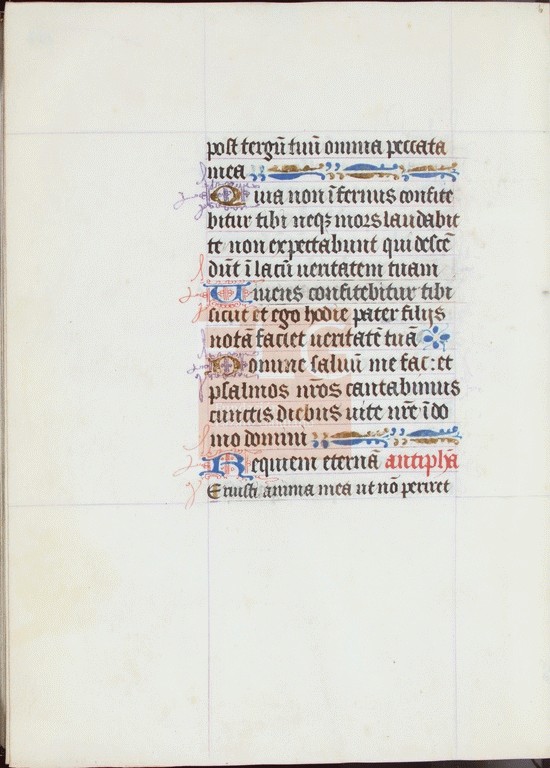 post tergū tuū omnia peccata
mea
Quia non īfernus confite
bitur tibi neqꝫ mors laudabit
te non expectabunt qui descē
dūt ī lacū ueritatem tuam
Uiuens confitebitur tibi
sicut et ego hodie pater filijs
notā faciet ueritatē tuā
Domine saluū me fac: et
psalmos nr̄os cantabimus
cunctis diebus uite nr̄e ī do
mo domini
Requiem eternā antiphā
Eruisti anima mea ut nō periret